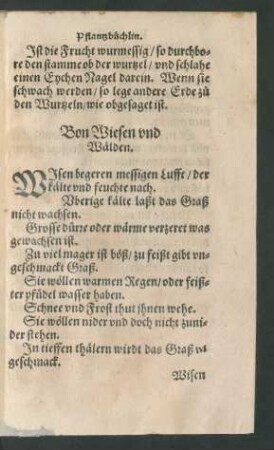 Pflantzbüchlin.
Ist die Frucht wurmessig / so durchbo-
re den stamme ob der wurtzel / vnd schlahe
einen Eychen Nagel darein. Wenn sie
schwach werden / so lege andere Erde zů
den Wurtzeln / wie obgesaget ist.
Von Wiesen vnd
Wälden.
WIsen begeren messigen Luffe / der
kälte vnd feuchte nach.
Vberige kälte laßt das Graß
nicht wachsen.
Grosse dürre oder wärme verzeret was
gewachsen ist.
Zu viel mager ist böß / zu feißt gibt vn-
geschmackt Graß.
Sie wöllen warmen Regen / oder feiß-
ter pfüdel wasser haben.
Schnee vnd Frost thut jhnen wehe.
Sie wöllen nider vnd doch nicht zuni-
der stehen.
In tieffen thälern wirdt das Graß vn
geschmack.
Wisen